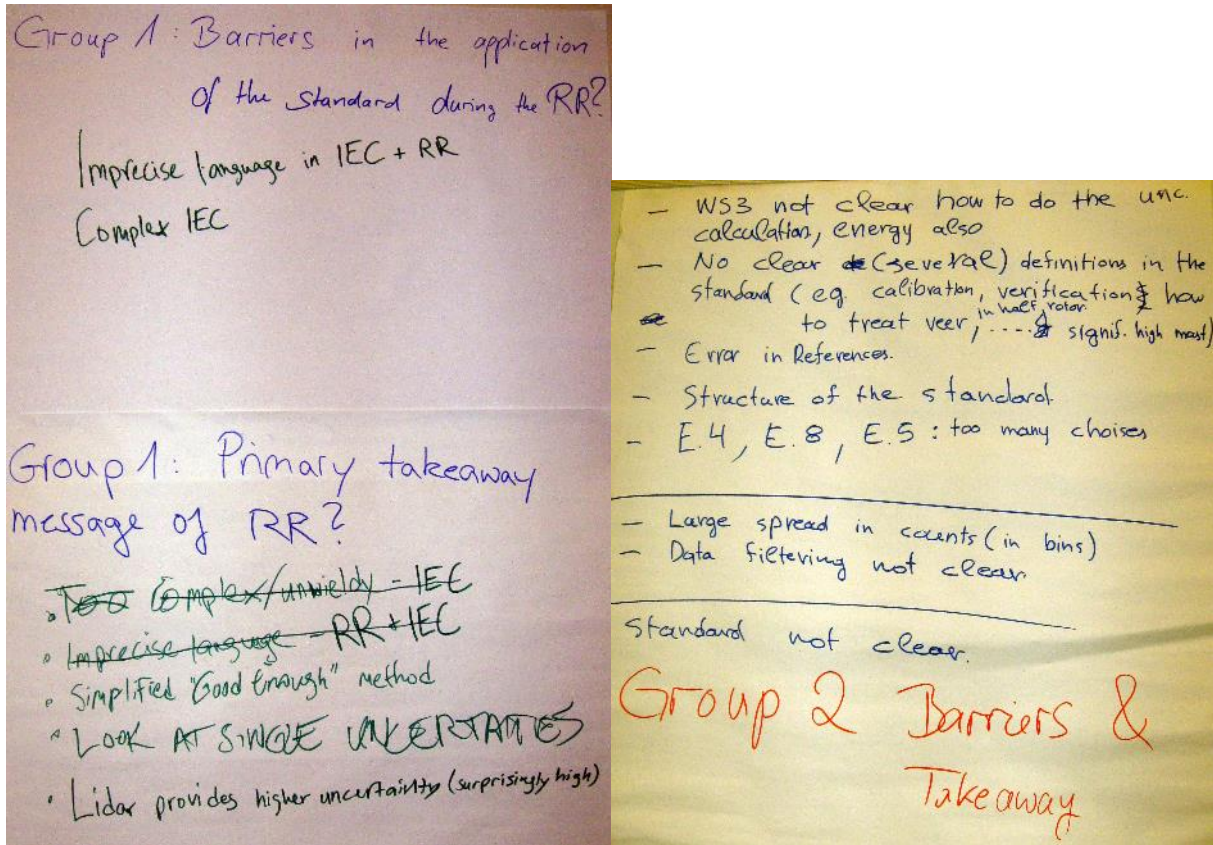 Group 1: Barriers in the application
of the standard during the RR?
Imprecise language in IEC + RR
Complex IEC
Group 1: Primary takeaway
message of RR?
• Too Complex/unwieldy - IEC
• Imprecise language - RR + IEC
• Simplified "Good Enough" method
• LOOK AT SINGLE UNCERTAITIES
• Lidar provides higher uncertainty (surprisingly high)
- WS3 not clear how to do the unc.
calculation, energy also
- No clear (several) definitions in the
standard (eg. calibration, verification & how
to treat veer, in half rotor .... & signif. high mast)
- Error in References.
- Structure of the standard.
- E.4, E.8, E.5 : too many choises
- Large spread in counts (in bins)
- Data filtering not clear.
Standard not clear.
Group 2 Barriers &
Takeaway